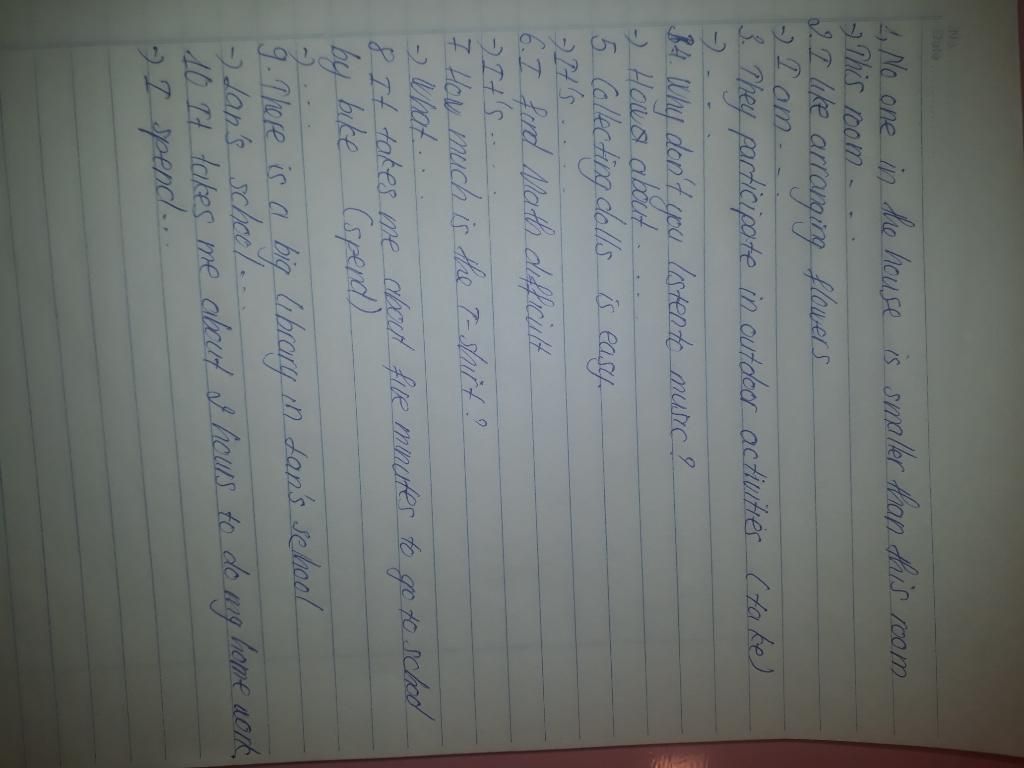 No.
Date
1. No one in the house is smaller than this room
-> This room - - .
2 I like arranging flowers
-> I am - - .
3. They participate in outdoor activities (take)
-> - - .
4. Why don't you listen to music?
-> How about . . .
5 Collecting dolls is easy.
-> It's . . . .
6. I find Math difficult
-> It's . . . .
7 How much is the T-shirt?
-> What . . . .
8 It takes me about five minutes to go to school
by bike (spend)
-> . . . .
9. There is a big library in Lan's school
-> Lan's school . . .
10 It takes me about 2 hours to do my home work.
-> I spend...